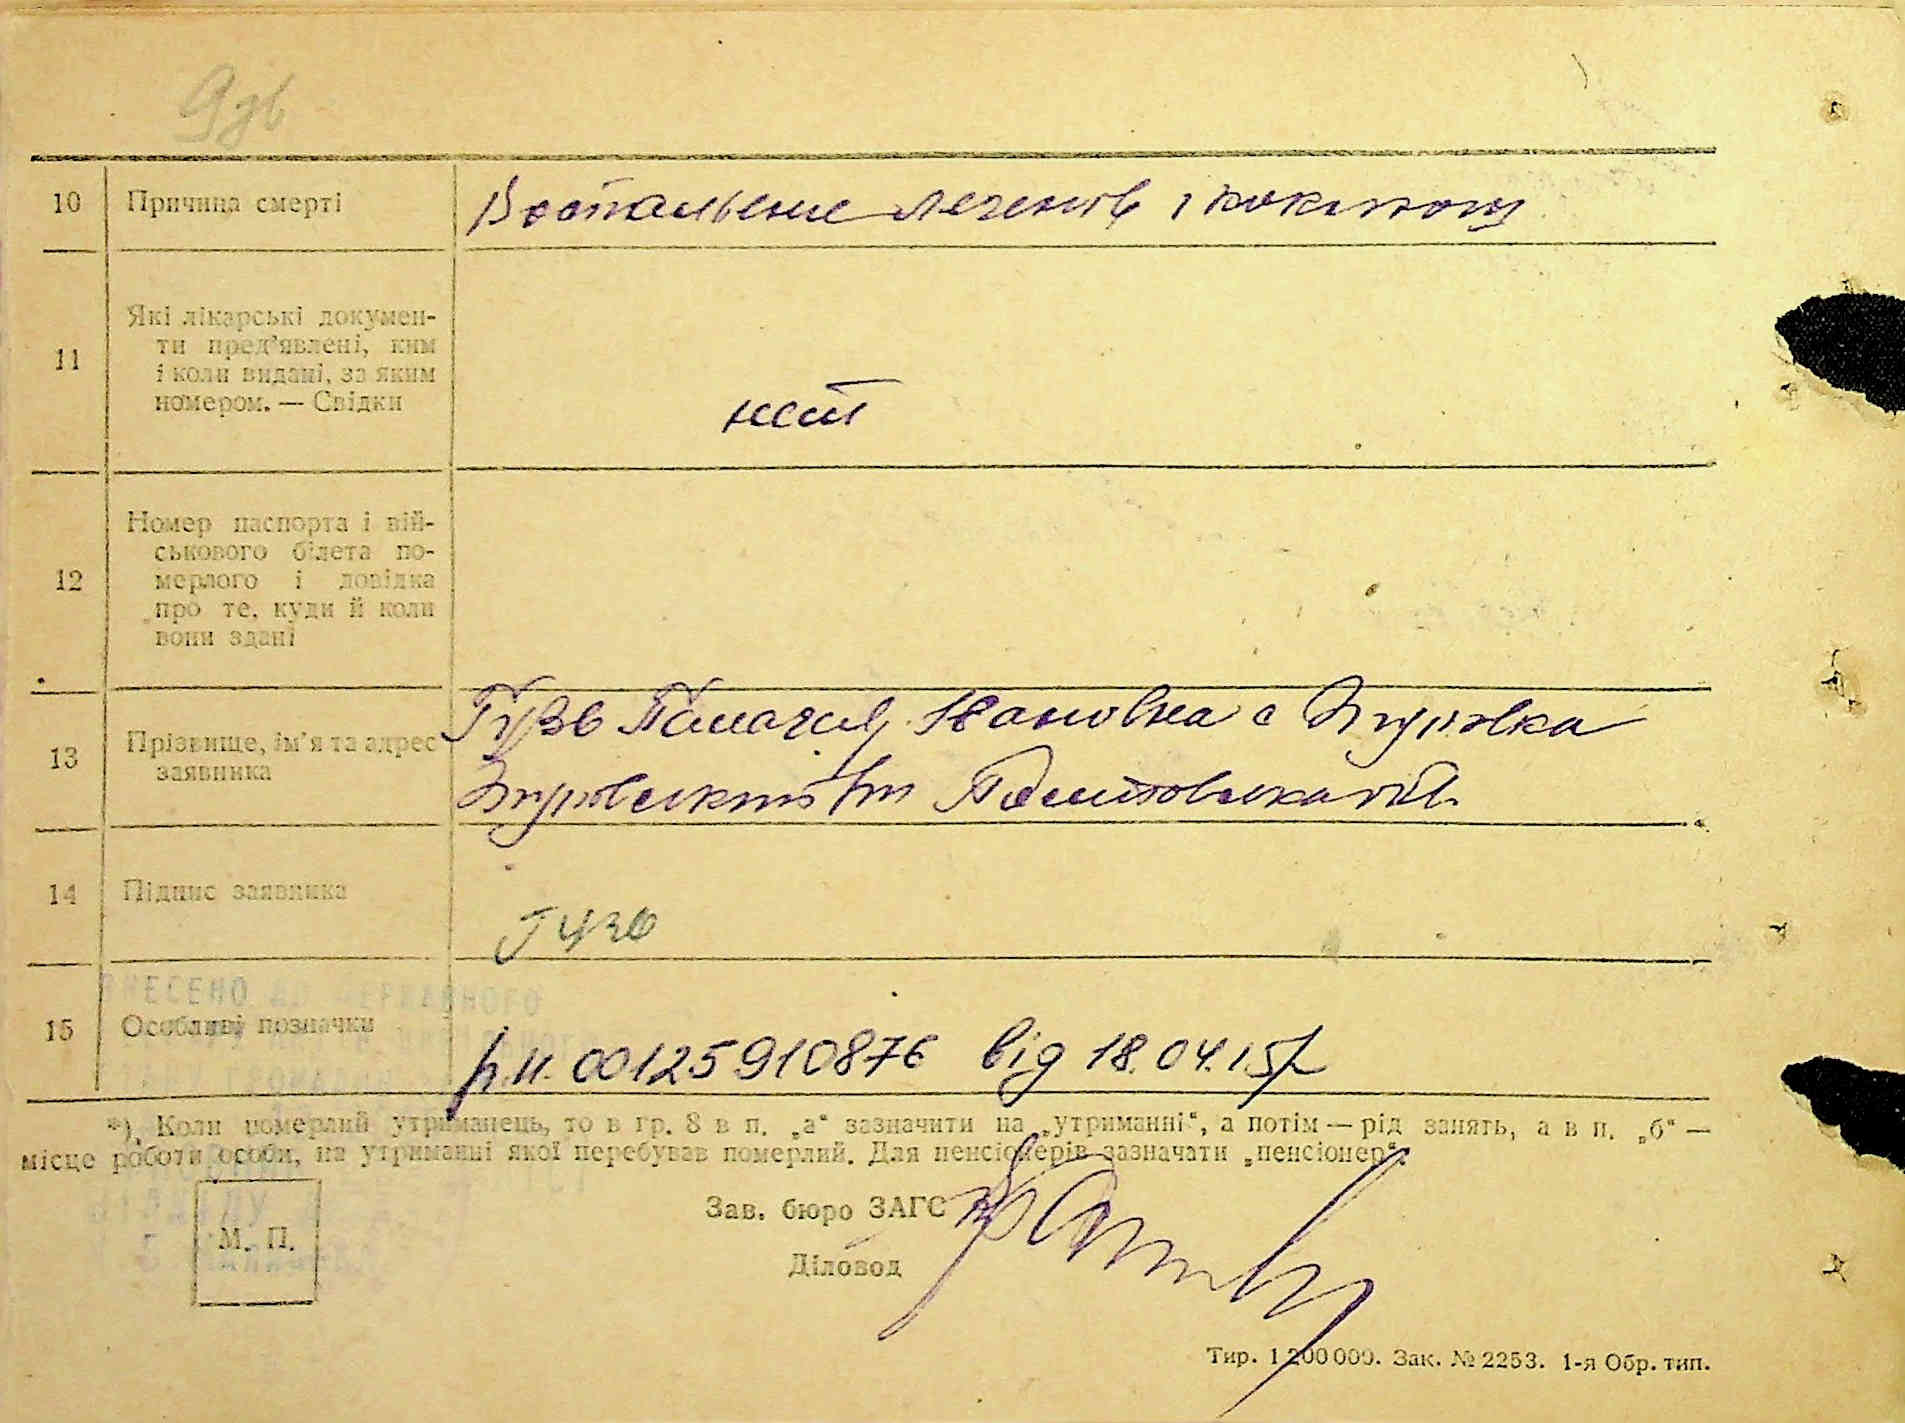 10 Причина смерті
11 Які лікарські докумен-
ти пред'явлені, ким
і коли видані, за яким
номером. — Свідки
нет
12 Номер паспорта і вій-
ськового білета по-
мерлого і довідка
про те, куди й коли
вони здані
13 Прізвище, ім'я та адрес
заявника
Гузь Ивановна с Згуровка
Згуровского Полтовская
14 Підпис заявника
Гузь
ВНЕСЕНО ДО ДЕРЖАВНОГО
15 Особливі позначки
р.н. 00125910876 від 18.04.15р
*) Коли померлий утриманець, то в гр. 8 в п. „а“ зазначити на „утриманні“, а потім — рід занять, а в п. „б“ —
місце роботи особи, на утриманні якої перебував померлий. Для пенсіонерів зазначати „пенсіонер“.
М. П.
Зав. бюро ЗАГС
Діловод
Тир. 1 200 000. Зак. № 2253. 1-я Обр. тип.